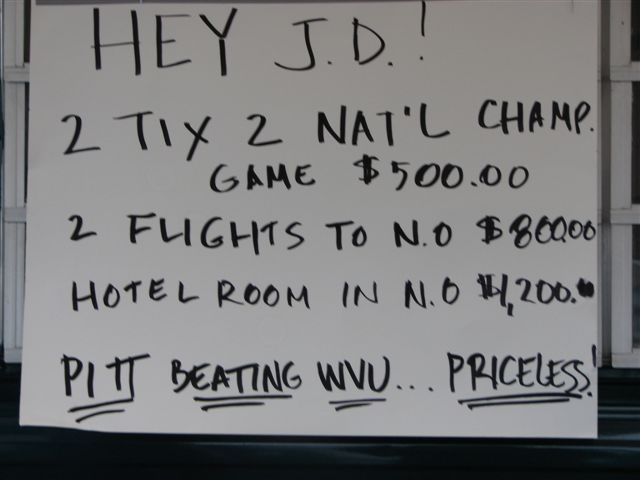 HEY J.D.!
2 TIX 2 NAT'L CHAMP.
GAME $500.00
2 FLIGHTS TO N.O $800.00
HOTEL ROOM IN N.O $1,200.
PITT BEATING WVU... PRICELESS!